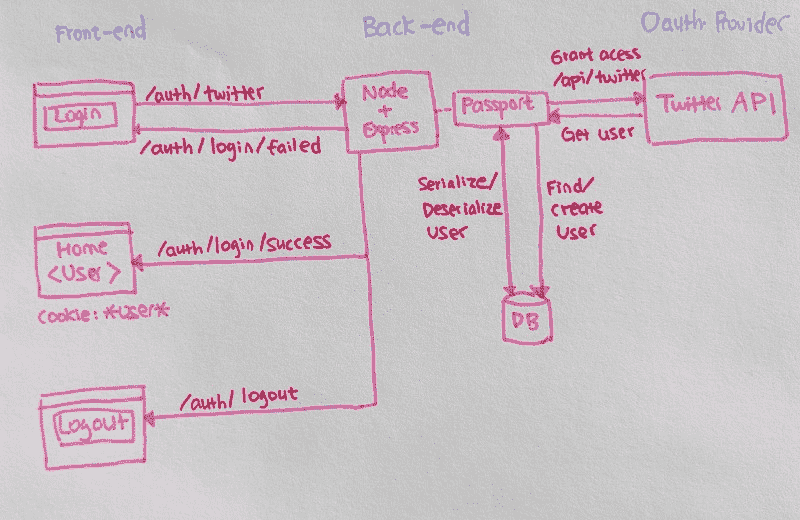 Front-end
Back-end
Oauth Provider
Login
/auth/twitter
/auth/login/failed
Node
+
Express
Passport
Grant acess
/api/twitter
Get user
Twitter API
Serialize/
Deserialize
User
Find/
create
User
DB
Home
<User>
/auth/login/success
cookie: *user*
Logout
/auth/logout